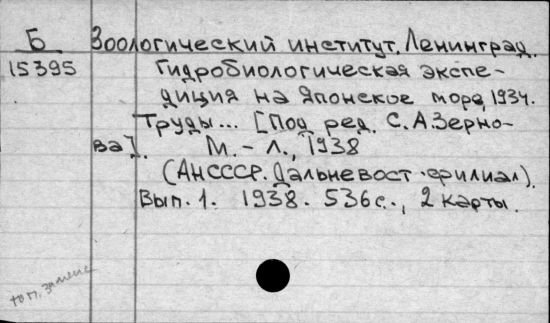 Б Зоологический институт. Ленинград.
15395 Гидробиологическая экспе-
диция на Японское море, 1934.
Труды... [Под ред. С. А. Зерно-
ва]. М.-Л., 1938
(АНСССР. Дальневост. филиал).
Вып. 1. 1938. 536 с., 2 карты.